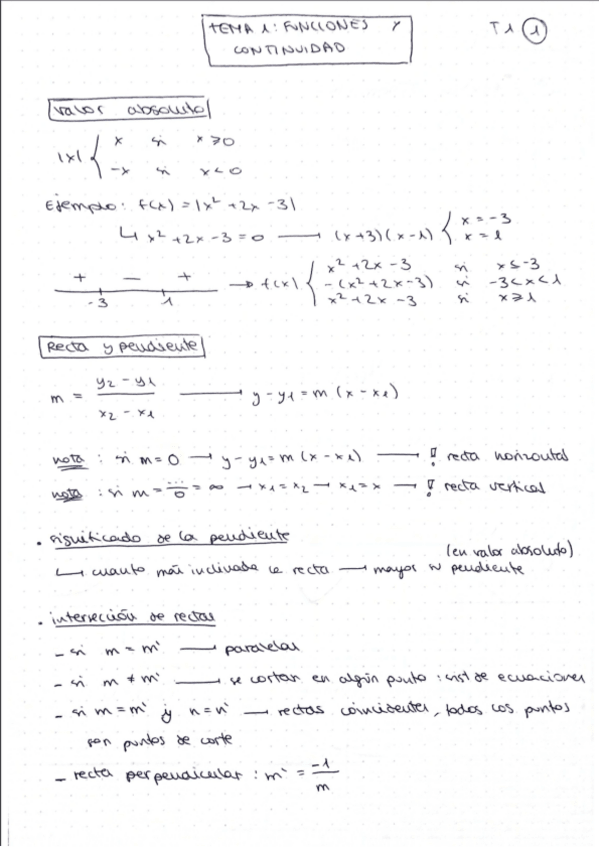 TEMA 1: FUNCIONES Y
CONTINUIDAD
T1 ①
Valor absoluto
|x| { x si x ≥ 0
-x si x < 0
Ejemplo: f(x) = |x² + 2x - 3|
↳ x² + 2x - 3 = 0 → (x+3)(x-1) { x = -3
x = 1
+ — +
-3 1
→ f(x) { x² + 2x - 3 si x ≤ -3
-(x² + 2x - 3) si -3 < x < 1
x² + 2x - 3 si x ≥ 1
Recta y pendiente
m = (y₂ - y₁) / (x₂ - x₁) → y - y₁ = m (x - x₁)
nota: si m = 0 → y - y₁ = m (x - x₁) → ! recta horizontal
nota: si m = ...../0 = ∞ → x₁ = x₂ → x₁ = x → ! recta vertical
· significado de la pendiente
(en valor absoluto)
↳ cuanto más inclinada la recta → mayor su pendiente
· intersección de rectas
- si m = m' → paralelas
- si m ≠ m' → se cortan en algún punto: sist de ecuaciones
- si m = m' y n = n' → rectas coincidentes, todos los puntos
son puntos de corte
- recta perpendicular: m' = -1/m